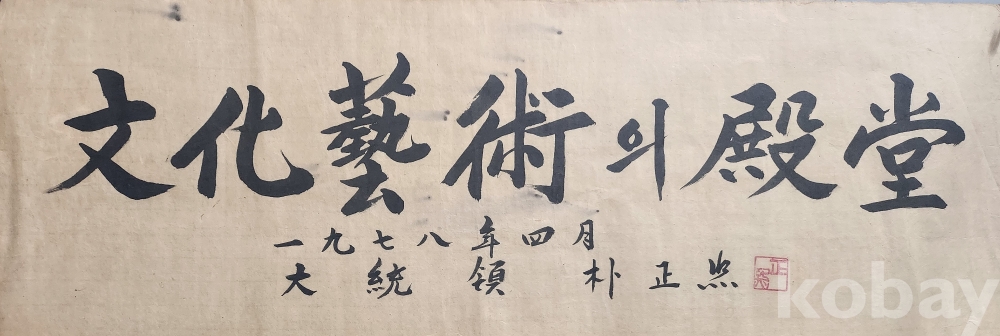 文化藝術의殿堂
一九七八年四月
大統領 朴正熙
kobay